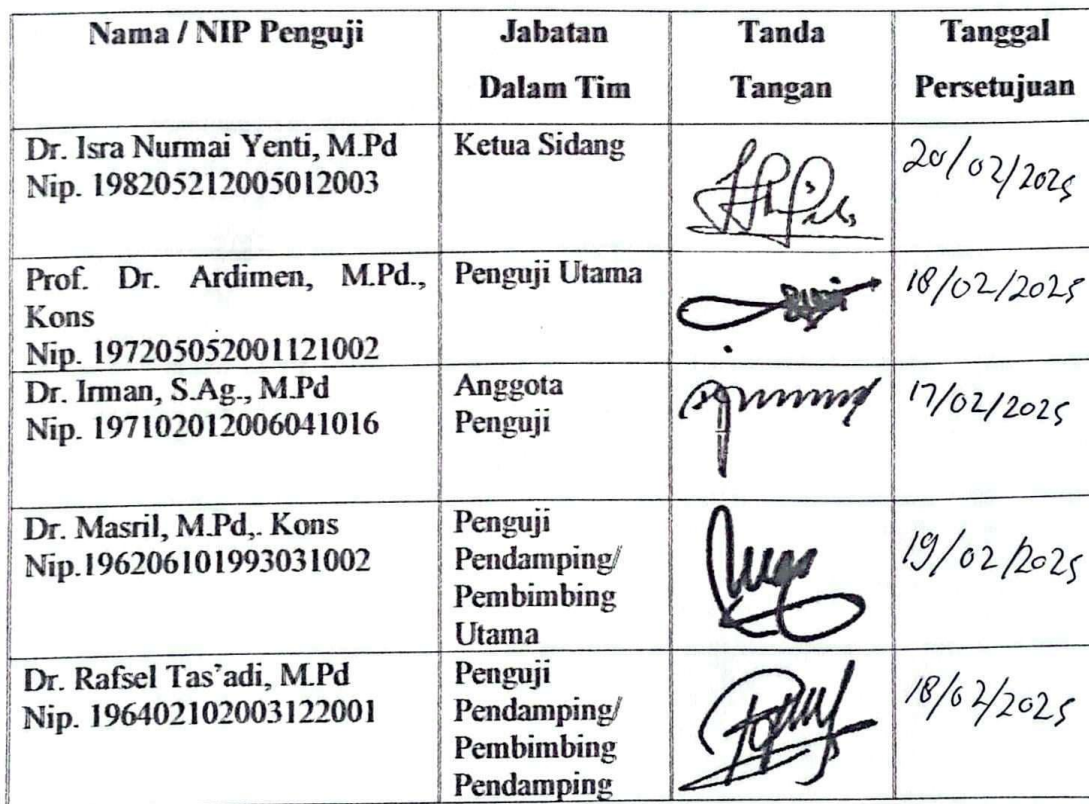 Nama / NIP Penguji
Jabatan
Dalam Tim
Tanda
Tangan
Tanggal
Persetujuan
Dr. Isra Nurmai Yenti, M.Pd
Nip. 198205212005012003
Ketua Sidang
20/02/2025
Prof. Dr. Ardimen, M.Pd.,
Kons
Nip. 197205052001121002
Penguji Utama
18/02/2025
Dr. Irman, S.Ag., M.Pd
Nip. 197102012006041016
Anggota
Penguji
17/02/2025
Dr. Masril, M.Pd,. Kons
Nip.196206101993031002
Penguji
Pendamping/
Pembimbing
Utama
19/02/2025
Dr. Rafsel Tas’adi, M.Pd
Nip. 196402102003122001
Penguji
Pendamping/
Pembimbing
Pendamping
18/02/2025